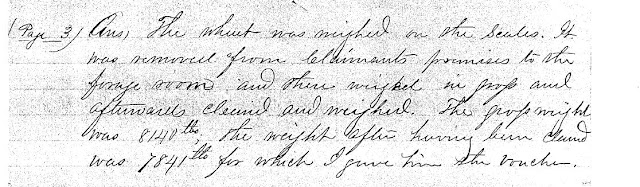 (Page 3) Ans, The wheat was weighed on the Scales. It
was removed from Claimants premises to the
forage room and there weighed in gross and
afterwards cleaned and weighed. The gross weight
was 8140 lbs, the weight after having been cleaned
was 7841 lbs for which I gave him the voucher.